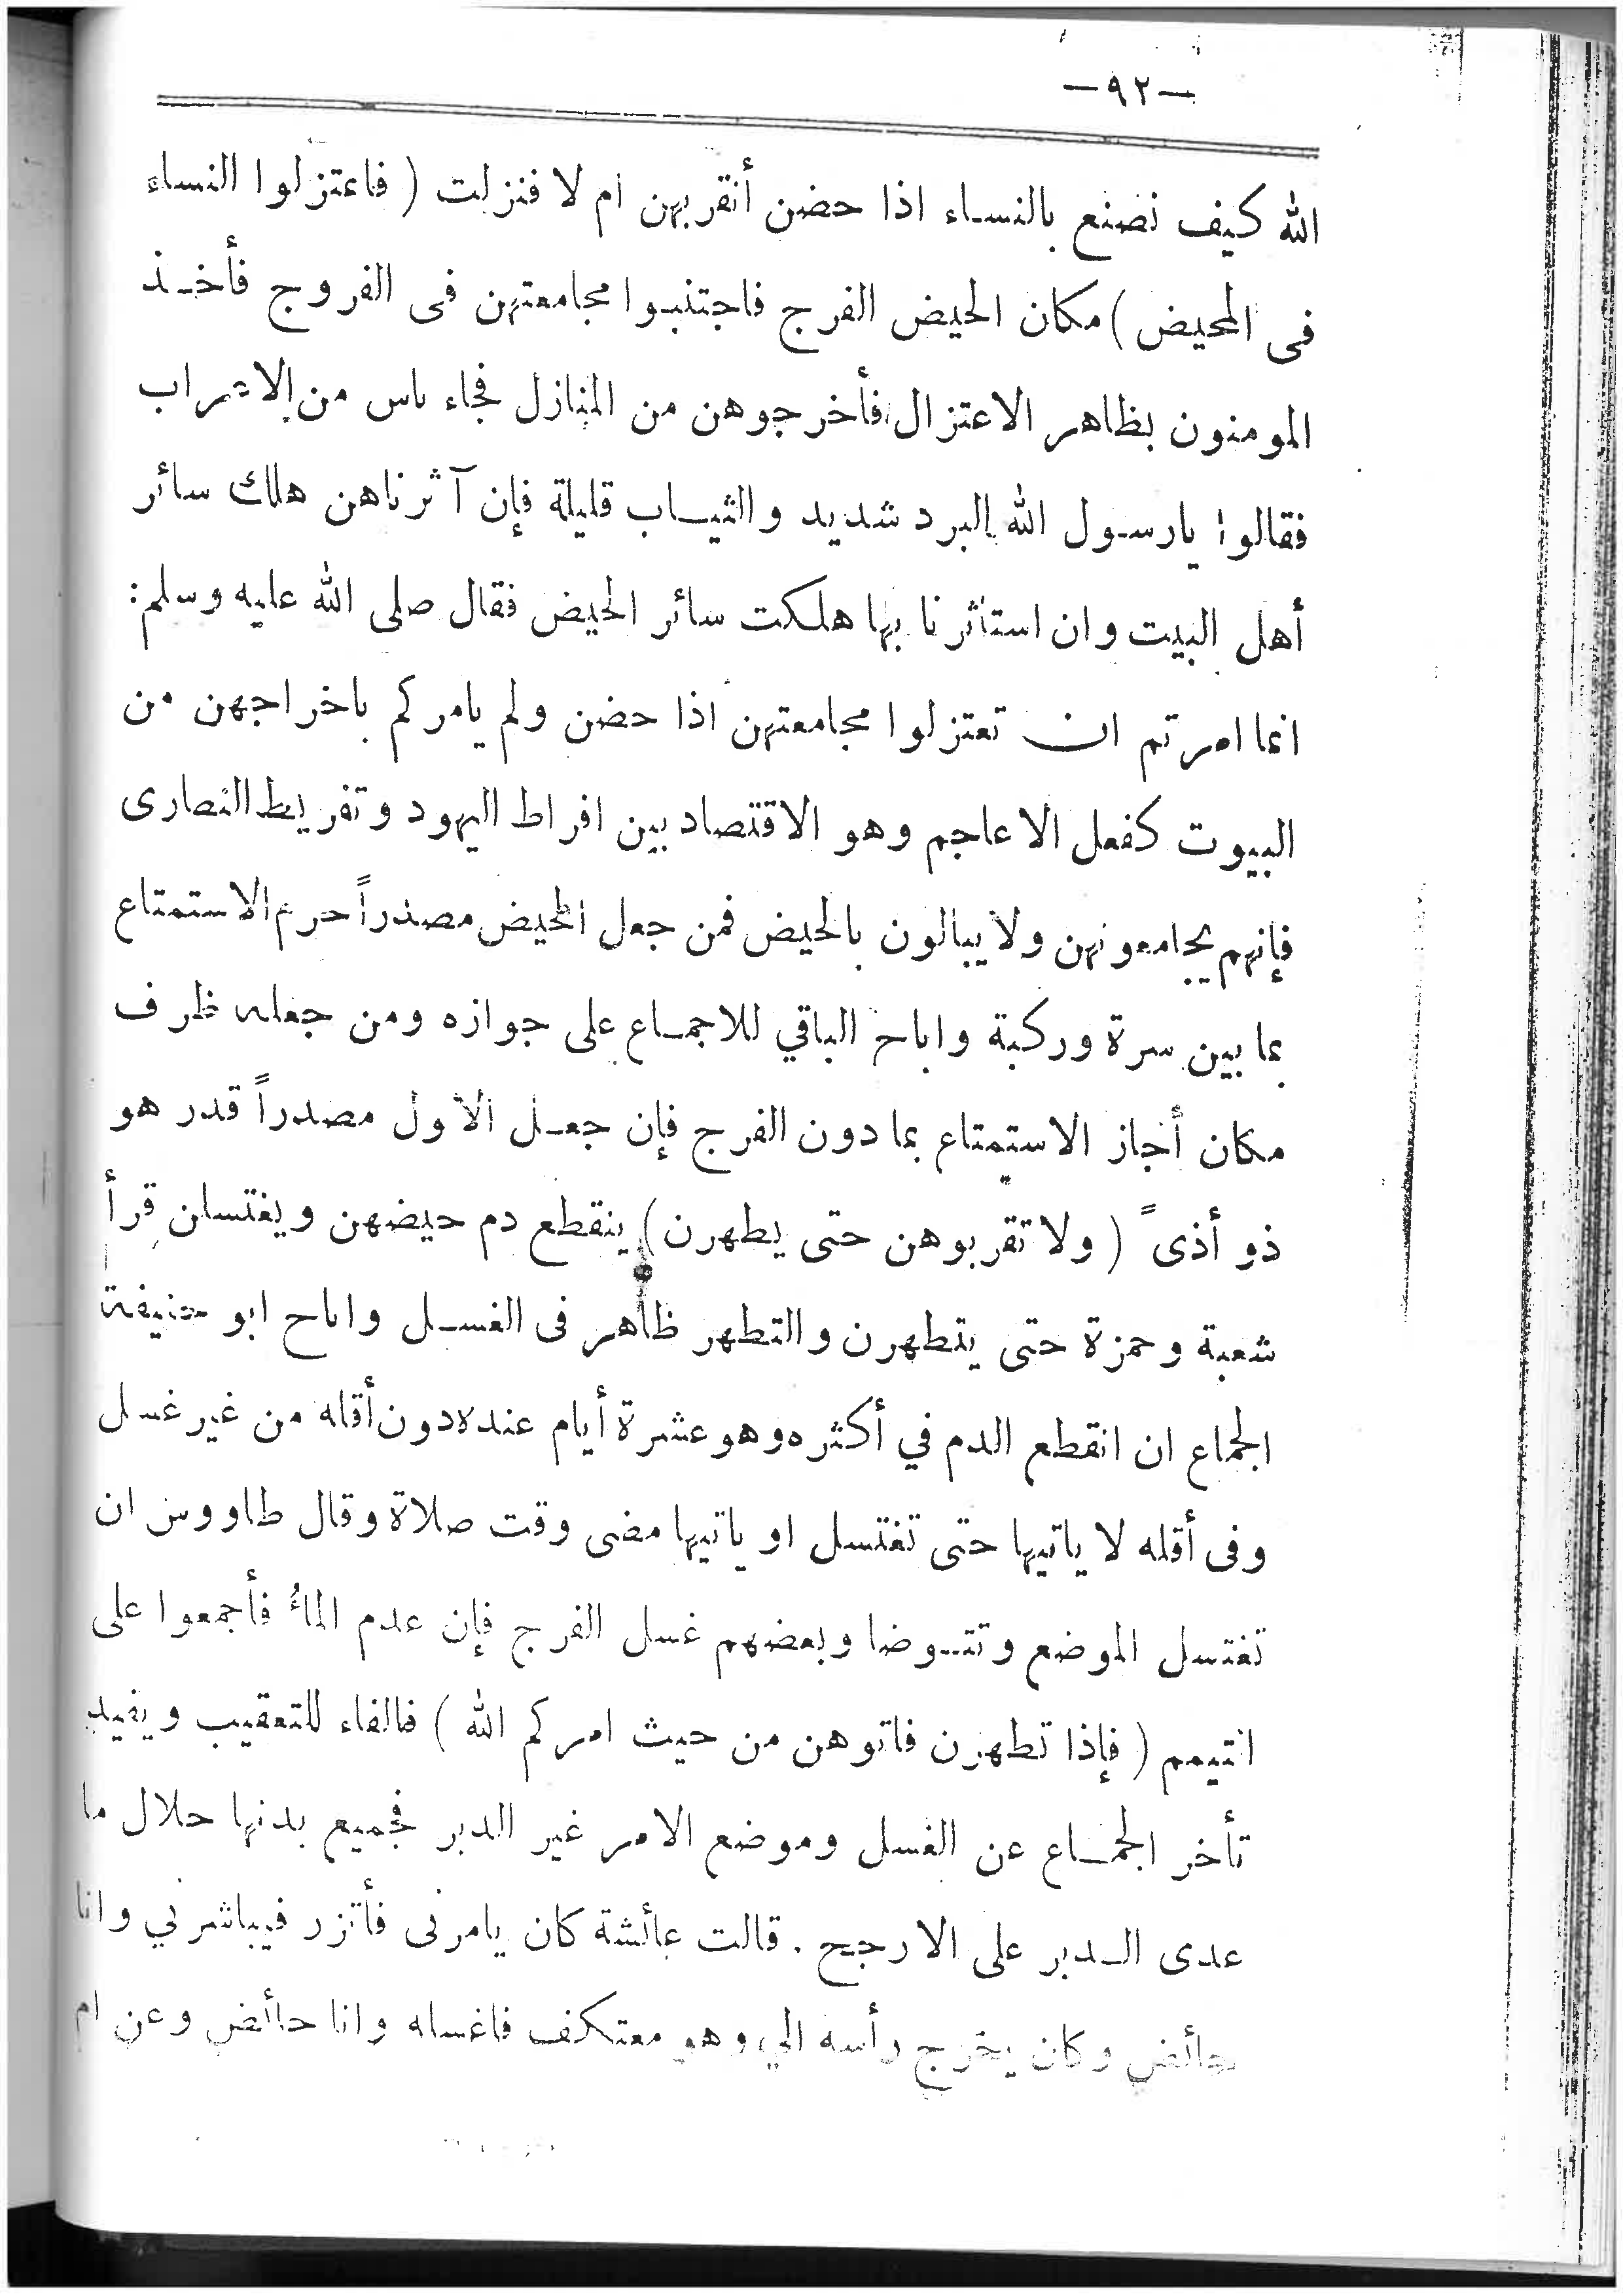 —٩٢—
الله كيف نصنع بالنساء اذا حضن أنقربهن ام لا فنزلت ( فاعتزلوا النساء
فى المحيض ) مكان الحيض الفرج فاجتنبوا مجامعتهن فى الفروج فأخذ
المومنون بظاهر الاعتزال فأخرجوهن من المنازل فجاء ناس من الاعراب
فقالوا يارسول الله البرد شديد والثياب قليلة فإن آثرناهن هلك سائر
أهل البيت وان استأثرنا بها هلكت سائر الحيض فقال صلى الله عليه وسلم :
انما امرتم ان تعتزلوا مجامعتهن اذا حضن ولم يامركم باخراجهن من
البيوت كفعل الاعاجم وهو الاقتصاد بين افراط اليهود وتفريط النصارى
فإنهم يجامعونهن ولا يبالون بالحيض فمن جعل المحيض مصدراً حرم الاستمتاع
بما بين سرة وركبة واباح الباقي للاجماع على جوازه ومن جعله ظرف
مكان أجاز الاستمتاع بما دون الفرج فإن جعل الاول مصدراً قدر هو
ذو أذىً ( ولا تقربوهن حتى يطهرن ) ينقطع دم حيضهن ويغتسلن قرأ
شعبة وحمزة حتى يتطهرن والتطهر ظاهر فى الغسل واباح ابو حنيفة
الجماع ان انقطع الدم في أكثره وهو عشرة أيام عنده دون أقله من غير غسل
وفى أقله لا ياتيها حتى تغتسل او ياتيها مضى وقت صلاة وقال طاووس ان
تغتسل الموضع وتتوضا وبعضهم غسل الفرج فإن عدم الماءُ فأجمعوا على
التيمم ( فإذا تطهرن فاتوهن من حيث امركم الله ) فالفاء للتعقيب ويفيد
تأخر الجماع عن الغسل وموضع الامر غير الدبر فجميع بدنها حلال ما
عدى الدبر على الارجح . قالت عائشة كان يامرنى فأتزر فيباشرني وانا
حائض وكان يخرج رأسه الي وهو معتكف فاغسله وانا حائض وعن ام